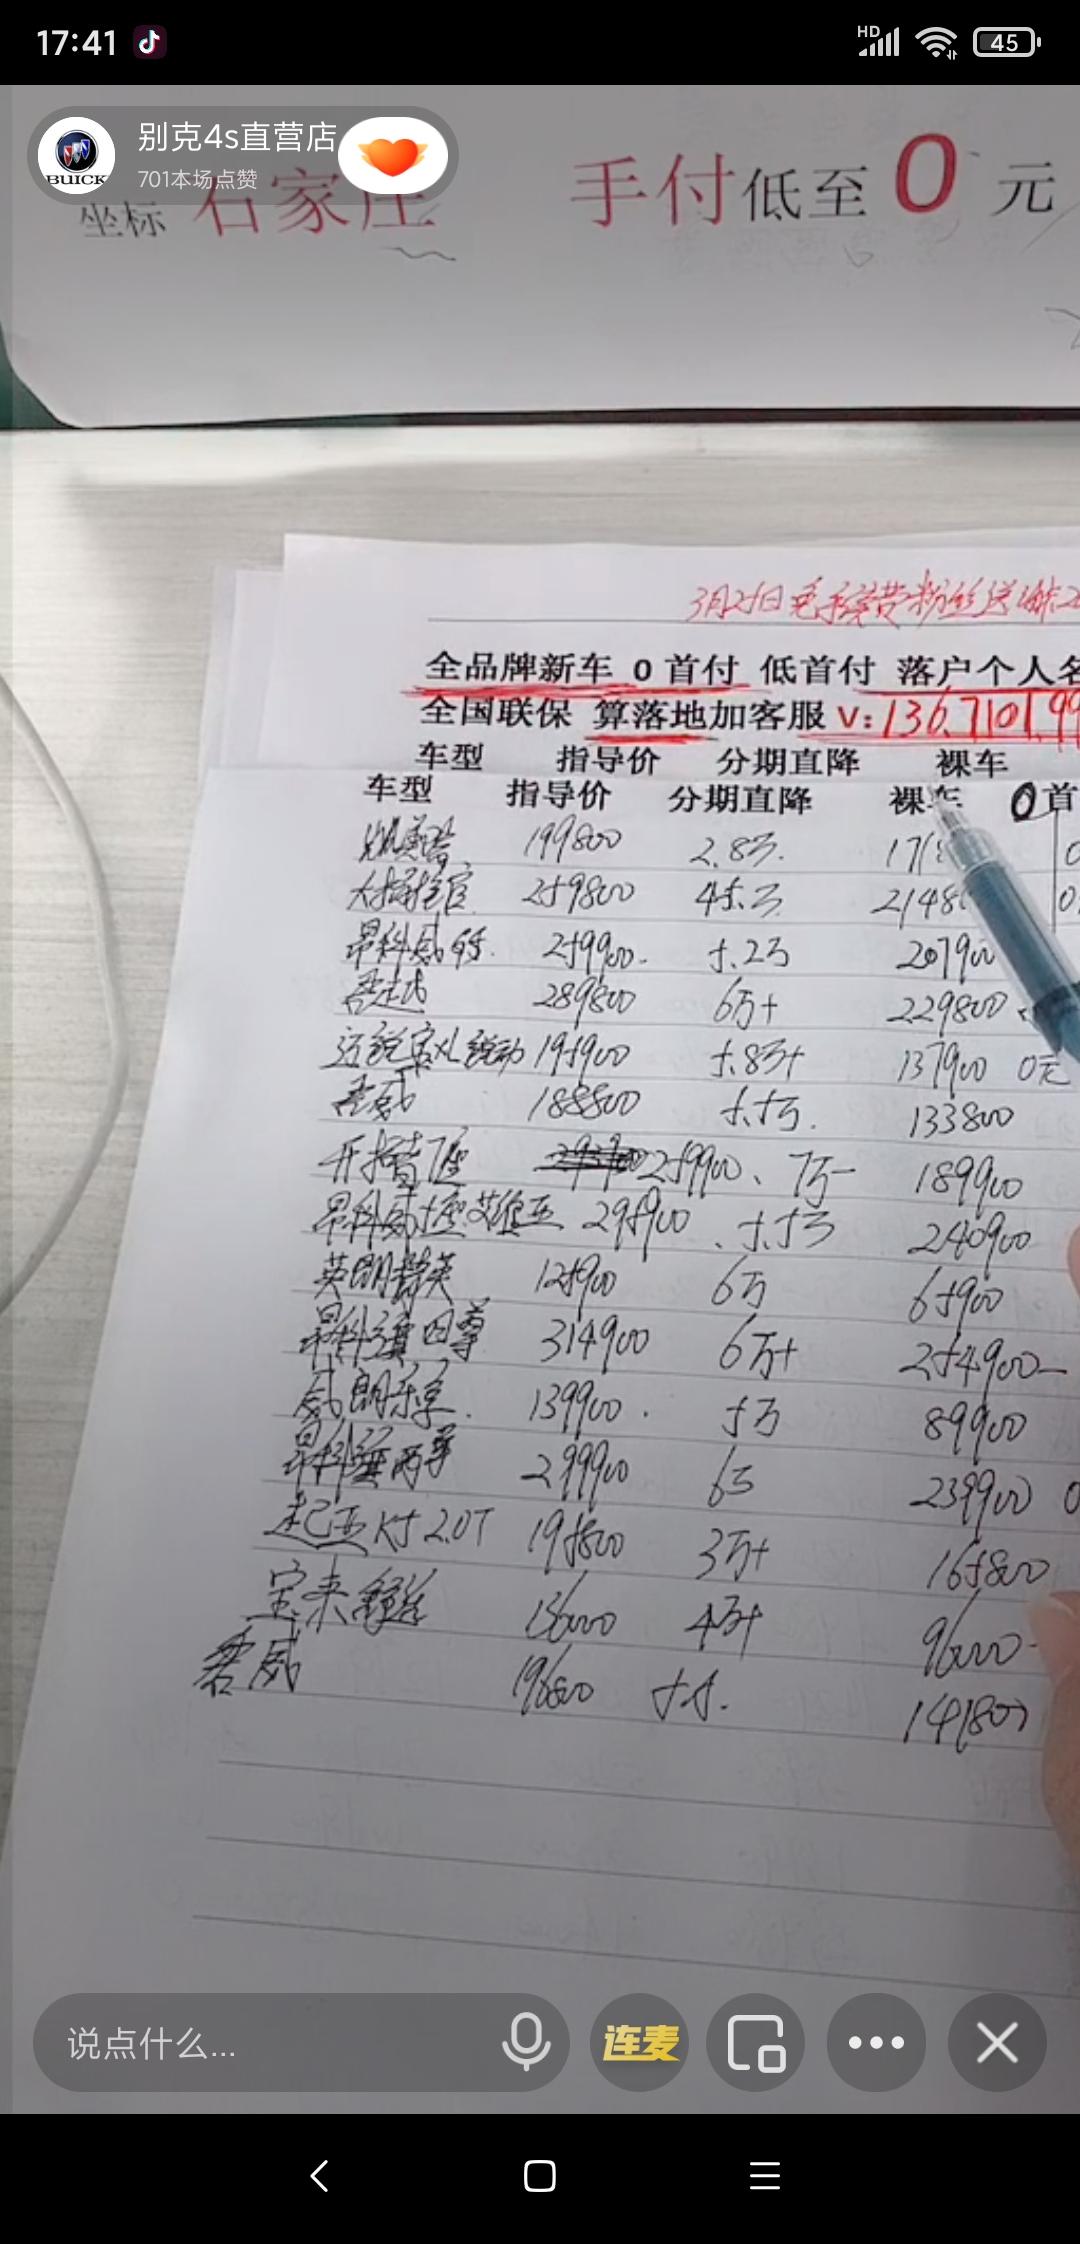 17:41
HD
45
别克4s直营店
701本场点赞
BUICK
坐标 石家庄 手付低至 0 元
全品牌新车 0 首付 低首付 落户个人名
全国联保 算落地加客服 V: 136.7101.99
车型 指导价 分期直降 裸车
车型 指导价 分期直降 裸车 0首
199800 2.8万.
259800 4.5万
昂科威 259900. 5.2万 207900
君越 289800 6万+ 229800
195900 5.8万+ 137900 0元
君威 188800 5.5万. 133800
开拓者7座 259900、7万 189900
昂科威 艾维亚 295900 5.5万 240900
英朗精英 125900 6万 65900
昂科旗四尊 314900 6万+ 254900
威朗乐享. 139900. 5万 89900
昂科 两尊 299900 6万 239900 0
起亚K5 2.0T 195800 3万+ 165800
宝来 136000 4万+ 96000
君威 196800 5.5. 141800
说点什么...
连麦